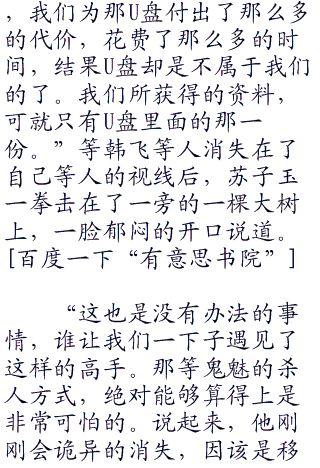 ，我们为那U盘付出了那么多
的代价，花费了那么多的时
间，结果U盘却是不属于我们
的了。我们所获得的资料，
可就只有U盘里面的那一
份。”等韩飞等人消失在了
自己等人的视线后，苏子玉
一拳击在了一旁的一棵大树
上，一脸郁闷的开口说道。
[百度一下“有意思书院”]
“这也是没有办法的事
情，谁让我们一下子遇见了
这样的高手。那等鬼魅的杀
人方式，绝对能够算得上是
非常可怕的。说起来，他刚
刚会诡异的消失，因该是移